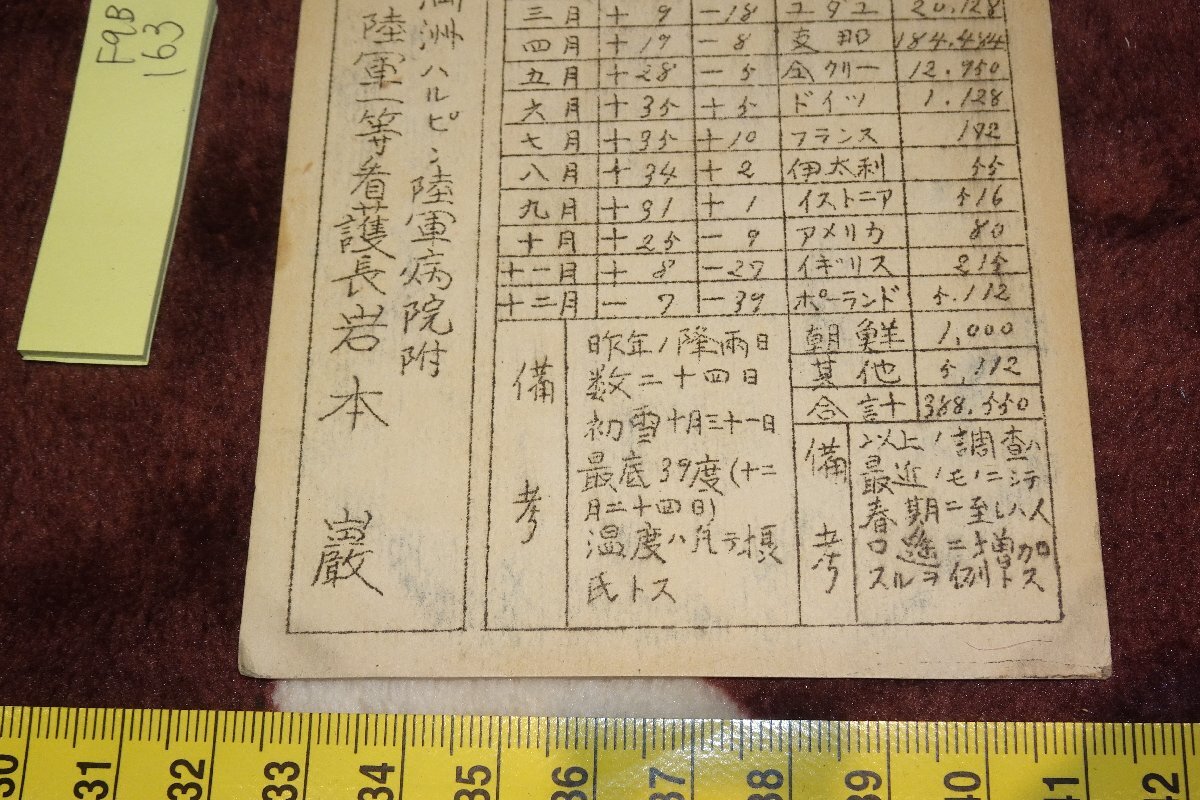 F9B
163
満洲ハルピン陸軍病院附
陸軍一等看護長岩本 巌
三月 +9 -18 ユダユ 20.128
四月 +19 -8 支那 184.484
五月 +28 -5 全クリー 12.950
六月 +35 +5 ドイツ 1.128
七月 +35 +10 フランス 192
八月 +34 +2 伊太利 55
九月 +31 +1 イストニア 516
十月 +25 -9 アメリカ 80
十一月 +8 -27 イギリス 215
十二月 -7 -39 ポーランド 5.112
朝鮮 1,000
其他 5,112
合計 388.550
備考
昨年ノ降雨日
数二十四日
初雪十月三十一日
最底39度(十二
月二十四日)
温度ハ凡テ摂
氏トス
備考
以上ノ調査ハ
最近ノモノニシテ
春期ニ至レハ人
口途ニ増加
スルヲ例トス
30 31 32 33 34 35 36 37 38 39 40 41 42